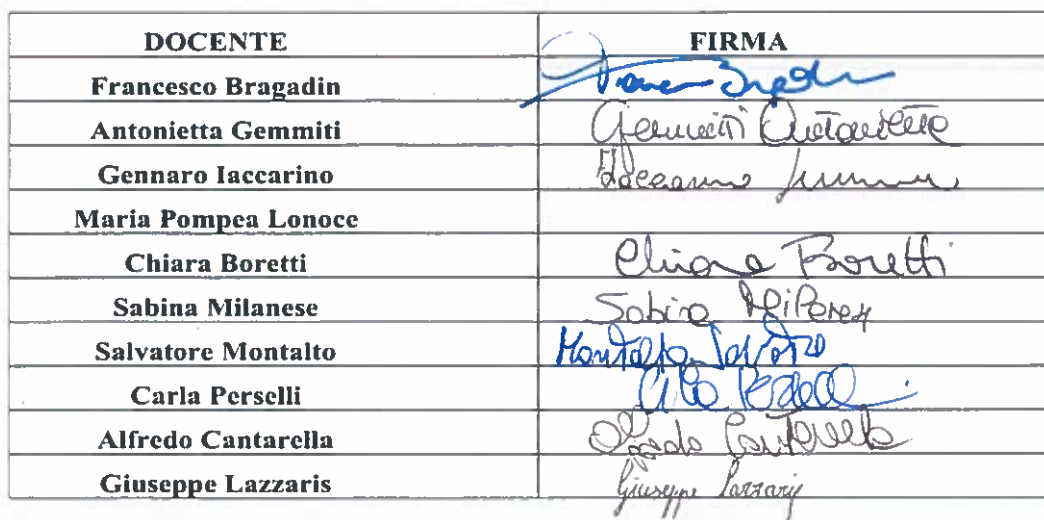 DOCENTE FIRMA
Francesco Bragadin
Antonietta Gemmiti Gemmiti Antonietta
Gennaro Iaccarino Iaccarino
Maria Pompea Lonoce
Chiara Boretti Chiara Boretti
Sabina Milanese Sabina Milanese
Salvatore Montalto Montalto Salvatore
Carla Perselli Carla Perselli
Alfredo Cantarella Alfredo Cantarella
Giuseppe Lazzaris Giuseppe Lazzaris